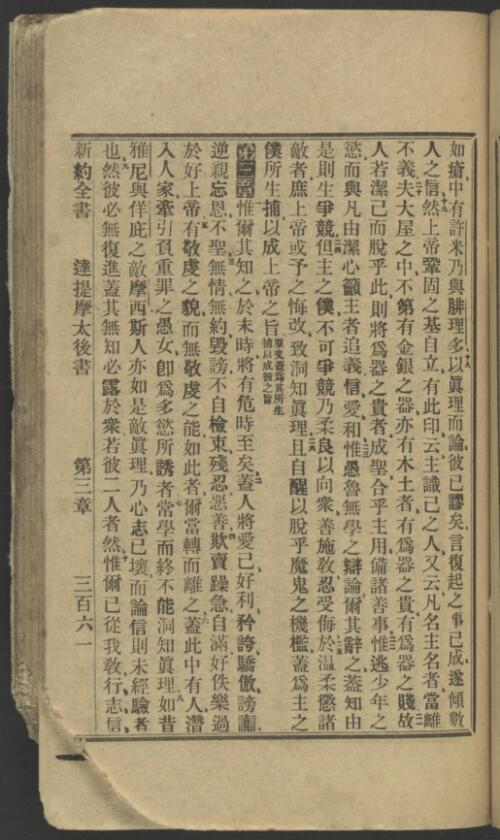 如瘡中有許米乃與腓理多以眞理而論彼已謬矣言復起之事已成遂傾數
人之信然上帝鞏固之基自立有此印云主識己之人又云凡名主名者當離
不義夫大屋之中不第有金銀之器亦有木土者有爲器之貴有爲器之賤故
人若潔己而脫乎此則將爲器之貴者成聖合乎主用備諸善事惟逃少年之
慾而與凡由潔心籲主者追義信愛和惟愚魯無學之辯論爾其辭之蓋知由
是則生爭競但主之僕不可爭競乃柔良以向衆善施敎忍受侮於温柔懲諸
敵者庶上帝或予之悔改致洞知眞理且自醒以脫乎魔鬼之機檻蓋爲主之
僕所生捕以成上帝之旨
捕以成彼之旨
第三章惟爾其知之於末時將有危時至矣蓋人將愛己好利矜誇驕傲謗讟
逆親忘恩不聖無情無約毀謗不自檢束殘忍惡善欺賣躁急自滿好佚樂過
於好上帝有敬虔之貌而無敬虔之能如此者爾當轉而離之蓋此中有人潛
入人家牽引負重罪之愚女卽爲多慾所誘者常學而終不能洞知眞理如昔
雅尼與佯庇之敵摩西斯人亦如是敵眞理乃心志已壞而論信則未經驗者
也然彼必無復進蓋其無知必露於衆若彼二人者然惟爾已從我敎行志信
新約全書 達提摩太後書 第三章 三百六一